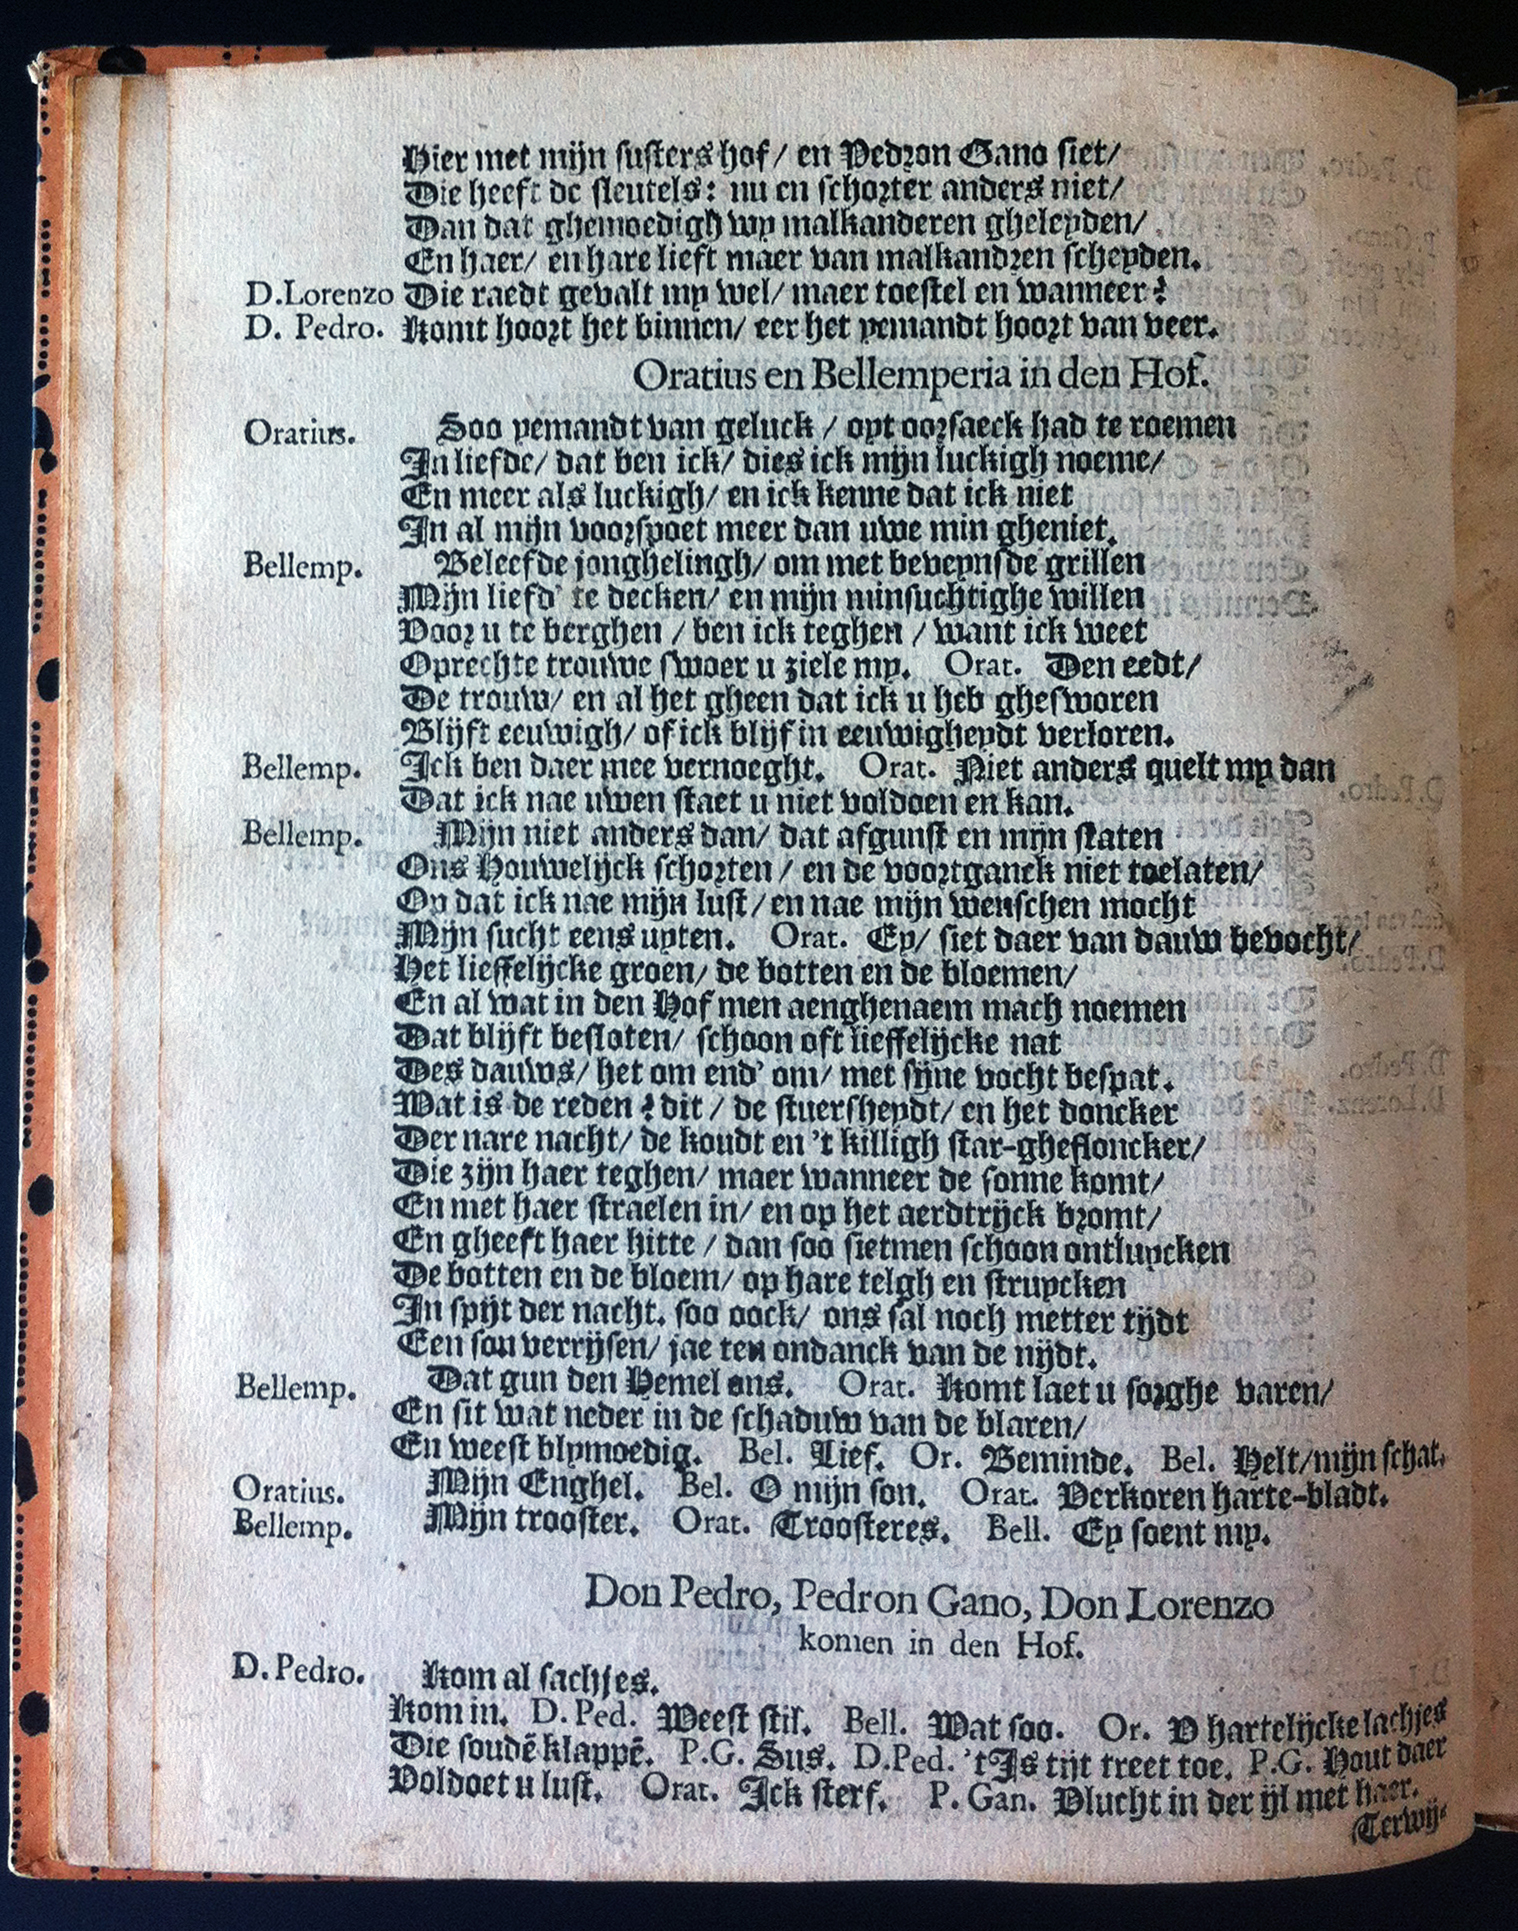 Hier met mijn susters hof/ en Pedron Gano siet/
Die heeft de sleutels: nu en schorter anders niet/
Dan dat ghemoedigh wy malkanderen gheleyden/
En haer/ en hare lieft maer van malkandren scheyden.
D.Lorenzo Die raedt gevalt my wel/ maer toestel en wanneer?
D. Pedro. Komt hoort het binnen/ eer het yemandt hoort van veer.
Oratius en Bellemperia in den Hof.
Oratius. Soo yemandt van geluck / oyt oorsaeck had te roemen
In liefde/ dat ben ick/ dies ick mijn luckigh noeme/
En meer als luckigh/ en ick kenne dat ick niet
In al mijn voorspoet meer dan uwe min gheniet.
Bellemp. Beleefde jonghelingh/ om met beveynsde grillen
Mijn liefd' te decken/ en mijn minsuchtighe willen
Voor u te berghen / ben ick teghen / want ick weet
Oprechte trouwe swoer u ziele my. Orat. Den eedt/
De trouw/ en al het gheen dat ick u heb ghesworen
Blijft eeuwigh/ of ick blijf in eeuwigheydt verloren.
Bellemp. Ick ben daer mee vernoeght. Orat. Niet anders quelt my dan
Dat ick nae uwen staet u niet voldoen en kan.
Bellemp. Mijn niet anders dan/ dat afgunst en mijn staten
Ons Houwelijck schorten / en de voortganck niet toelaten/
Op dat ick nae mijn lust/ en nae mijn wenschen mocht
Mijn sucht eens uyten. Orat. Ey/ siet daer van dauw bevocht/
Het lieffelijcke groen/ de botten en de bloemen/
En al wat in den Hof men aenghenaem mach noemen
Dat blijft besloten/ schoon oft lieffelijcke nat
Des dauws/ het om end' om/ met sijne vocht bespat.
Wat is de reden? dit / de stuersheydt/ en het doncker
Der nare nacht/ de koudt en 't killigh star-ghefloncker/
Die zijn haer teghen/ maer wanneer de sonne komt/
En met haer straelen in/ en op het aerdtrijck bromt/
En gheeft haer hitte / dan soo sietmen schoon ontluycken
De botten en de bloem/ op hare telgh en struycken
In spijt der nacht. soo oock/ ons sal noch metter tijdt
Een son verrijsen/ jae ten ondanck van de nijdt.
Bellemp. Dat gun den Hemel ons. Orat. Komt laet u sorghe varen/
En sit wat neder in de schaduw van de blaren/
En weest blymoedig. Bel. Lief. Or. Beminde. Bel. Helt/mijn schat.
Oratius. Mijn Enghel. Bel. O mijn son. Orat. Verkoren harte-bladt.
Bellemp. Mijn trooster. Orat. Troosteres. Bell. Ey soent my.
Don Pedro, Pedron Gano, Don Lorenzo
komen in den Hof.
D. Pedro. Kom al sachjes.
Kom in. D. Ped. Weest stil. Bell. Wat soo. Or. O hartelijcke lachjes
Die soudē klappē. P.G. Sus. D.Ped. 't Is tijt treet toe. P.G. Hout daer
Voldoet u lust. Orat. Ick sterf. P. Gan. Vlucht in der ijl met haer.
Terwij-